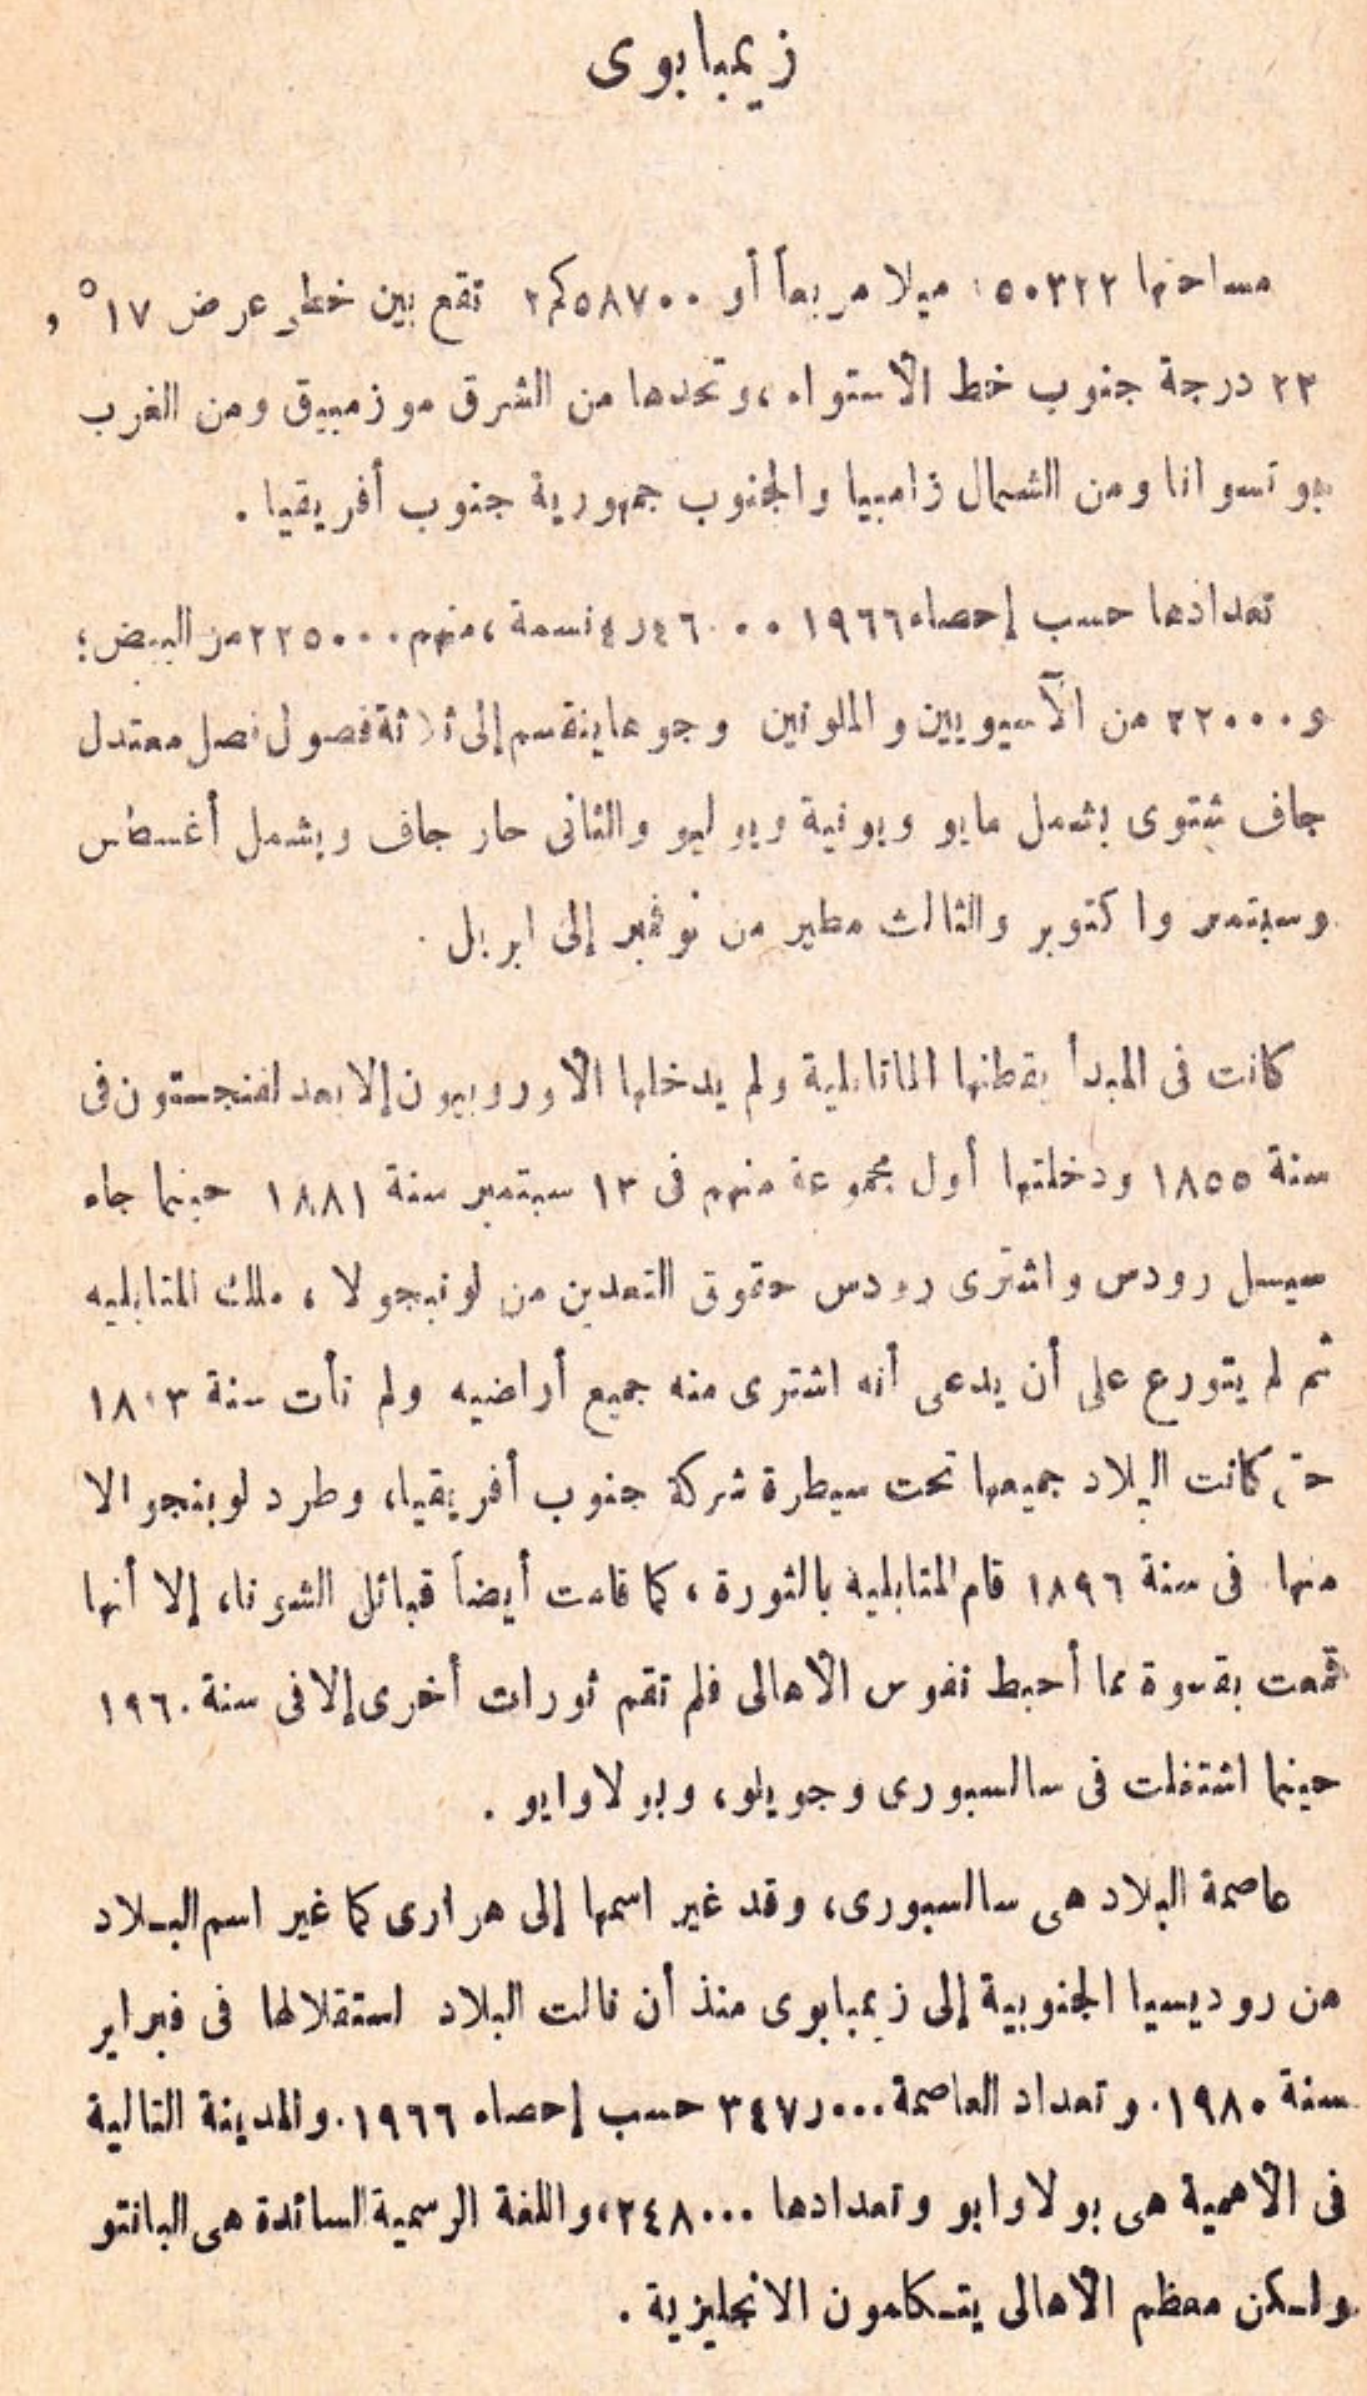 زيمبابوى
مساحتها ٥٠٣٢٢ ميلا مربعاً أو ٥٨٧٠٠كم٢ تقع بين خطى عرض ١٧° ،
٢٣ درجة جنوب خط الأستواء ، وتحدها من الشرق موزمبيق ومن الغرب
بوتسوانا ومن الشمال زامبيا والجنوب جمهورية جنوب أفريقيا .
تعدادها حسب إحصاء ١٩٦٦ ٤ر٤٦٠٠٠ نسمة ، منهم ٢٢٥٠٠٠ من البيض ؛
و ٢٢٠٠٠ من الآسيويين والملونين وجوها ينقسم إلى ثلاثة فصول فصل معتدل
جاف شتوى يشمل مايو ويونية ويوليو والثانى حار جاف ويشمل أغسطس
وسبتمبر واكتوبر والثالث مطير من نوفمبر إلى ابريل .
كانت فى المبدأ يقطنها الماتابلية ولم يدخلها الأوروبيون إلا بعد لفنجستون فى
سنة ١٨٥٥ ودخلتها أول مجموعة منهم فى ١٣ سبتمبر سنة ١٨٨١ حينما جاء
سيسل رودس واشترى رودس حقوق التعدين من لونبجولا ، ملك المتابليه
ثم لم يتورع على أن يدعى أنه اشترى منه جميع أراضيه ولم تأت سنة
حتى كانت البلاد جميعها تحت سيطرة شركة جنوب أفريقيا، وطرد لوبنجوالا
منها . فى سنة ١٨٩٦ قام المتابلية بالثورة ، كما قامت أيضاً قبائل الشونا، إلا أنها
قمعت بقسوة مما أحبط نفوس الأهالى فلم تقم ثورات أخرى إلا فى سنة ١٩٦٠
حينما اشتغلت فى سالسبورى وجويلو، وبولاوايو .
عاصمة البلاد هى سالسبورى، وقد غير اسمها إلى هرارى كما غير اسم البـلاد
من روديسيا الجنوبية إلى زيمبابوى منذ أن نالت البلاد استقلالها فى فبراير
سنة ١٩٨٠. وتعداد العاصمة ٣٤٧ر٠٠٠ حسب إحصاء ١٩٦٦. والمدينة التالية
فى الأهمية هى بولاوايو وتعدادها ٢٤٨٠٠٠، واللغة الرسمية السائدة هى البانتو
ولـكن معظم الأهالى يتـكلمون الانجليزية .